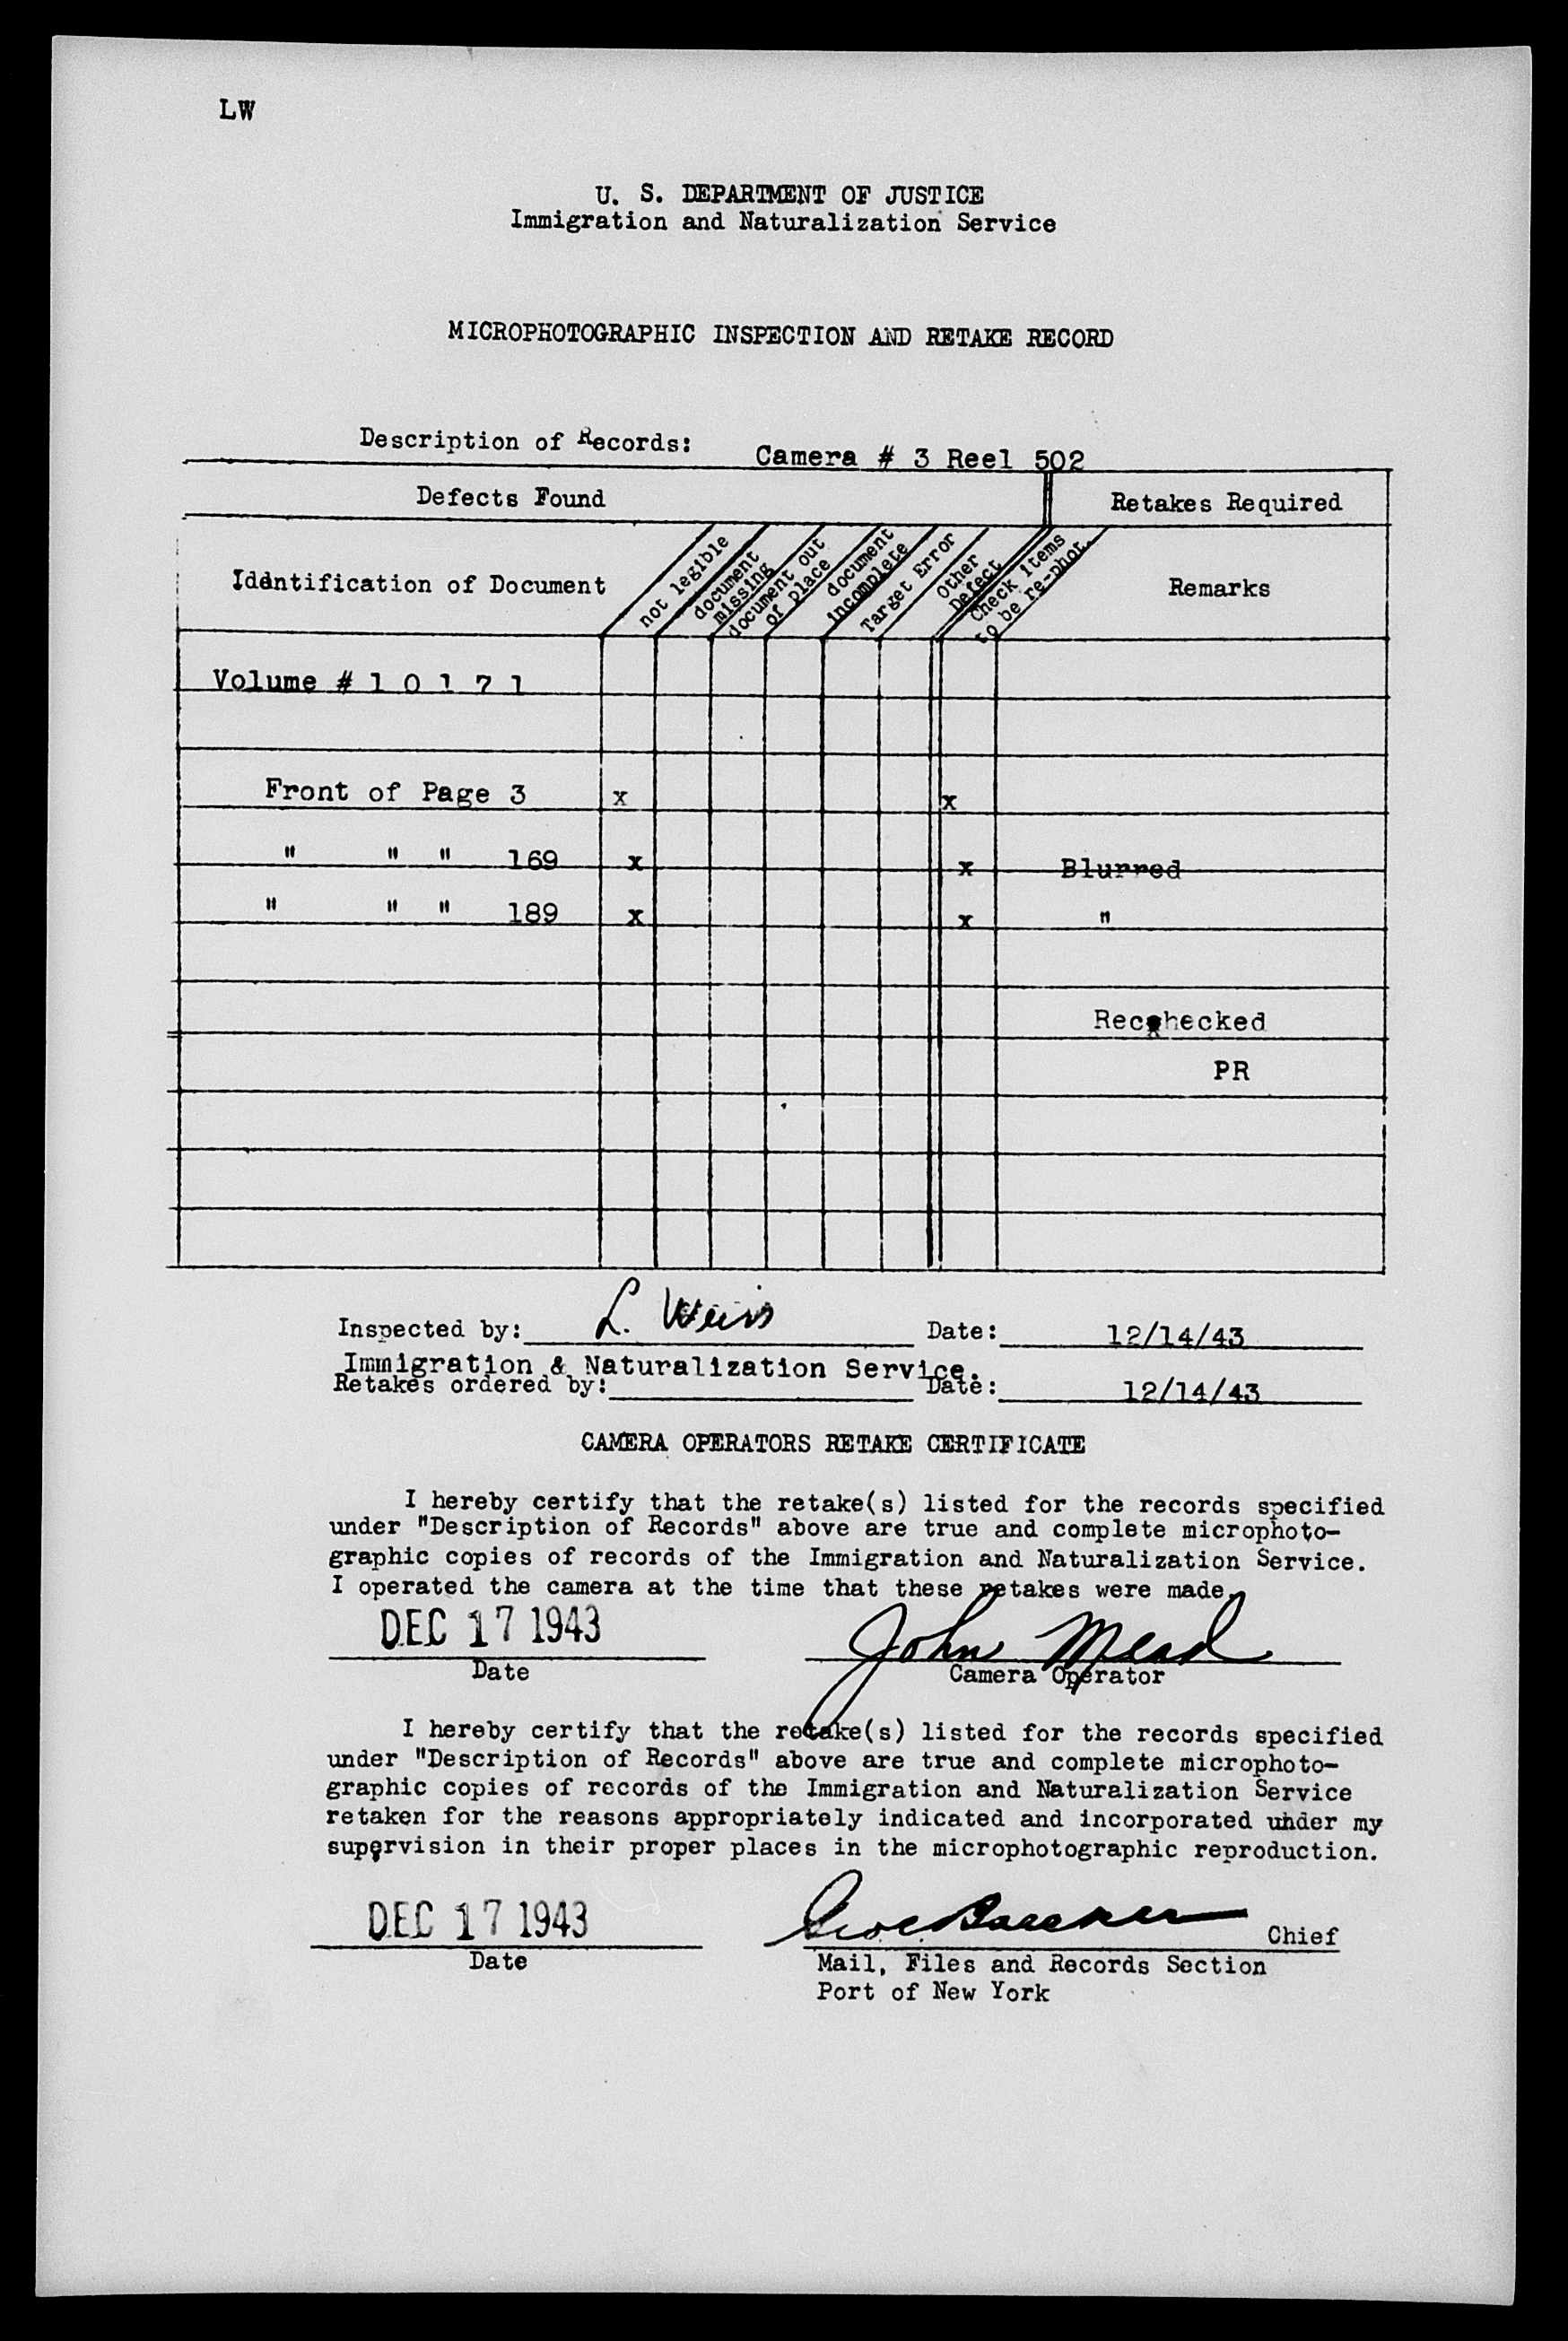 LW
U. S. DEPARTMENT OF JUSTICE
Immigration and Naturalization Service
MICROPHOTOGRAPHIC INSPECTION AND RETAKE RECORD
Description of Records: Camera # 3 Reel 502
Defects Found Retakes Required
Identification of Document
not legible
document missing
document out of place
document incomplete
Target Error
Other Defect
Check items to be re-phot.
Remarks
Volume # 1 0 1 7 1
Front of Page 3 x x
" " " 169 x x Blurred
" " " 189 x x "
Rechecked
PR
Inspected by: L. Weiss Date: 12/14/43
Immigration & Naturalization Service.
Retakes ordered by: Date: 12/14/43
CAMERA OPERATORS RETAKE CERTIFICATE
I hereby certify that the retake(s) listed for the records specified
under "Description of Records" above are true and complete microphoto-
graphic copies of records of the Immigration and Naturalization Service.
I operated the camera at the time that these retakes were made.
DEC 17 1943 John Mead
Date Camera Operator
I hereby certify that the retake(s) listed for the records specified
under "Description of Records" above are true and complete microphoto-
graphic copies of records of the Immigration and Naturalization Service
retaken for the reasons appropriately indicated and incorporated under my
supervision in their proper places in the microphotographic reproduction.
DEC 17 1943 Chief
Date Mail, Files and Records Section
Port of New York